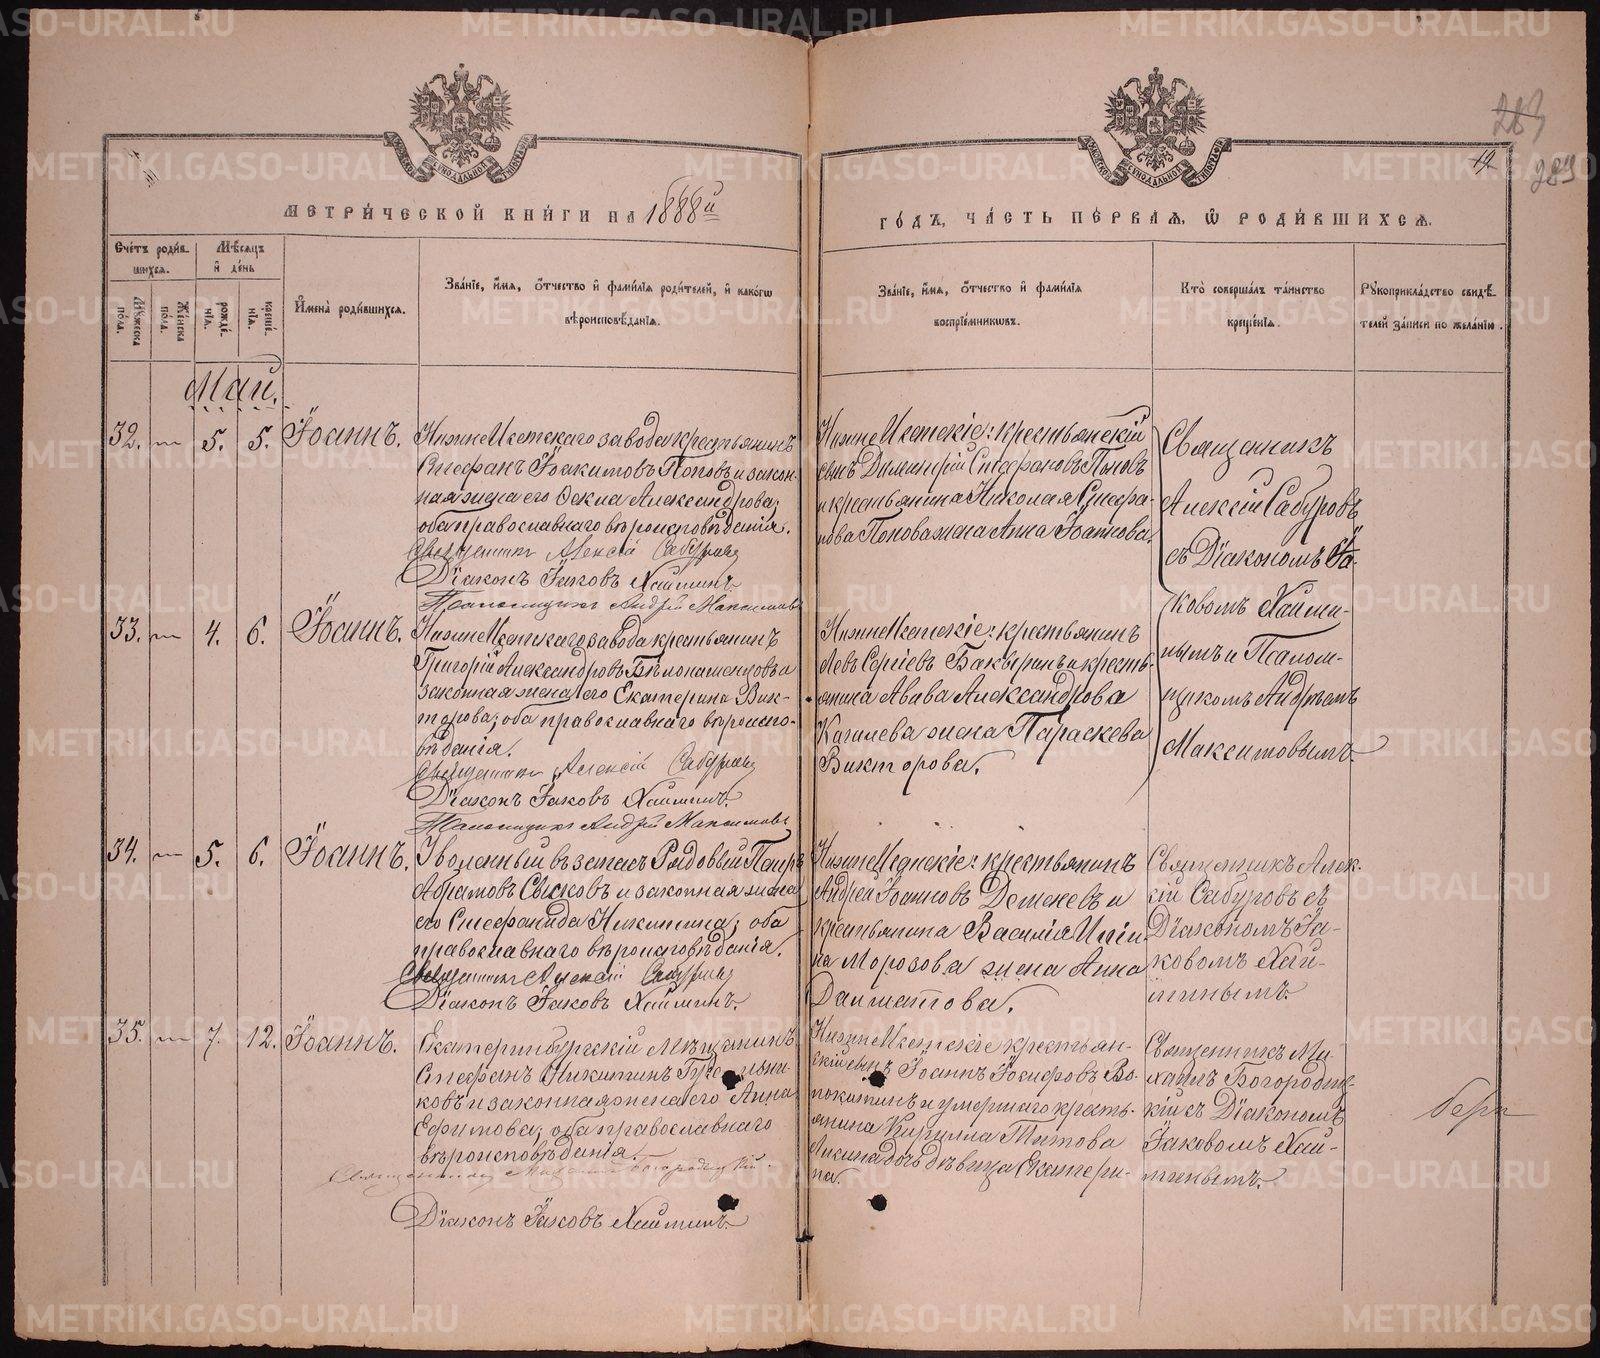 МЕТРИ́ЧЕСКОЙ КНИ́ГИ НА 1888й
ГО́ДЪ, ЧА́СТЬ ПЕ́РВАЯ, Ѿ РОДИ́ВШИХСЯ.
283
12
283
Сче́тъ роди́в-
шихся.
Мѣ́сяцъ
и де́нь
Му́жеска
по́ла.
Же́нска
по́ла.
рожде́-
нія.
креще́-
нія.
Имена̀ роди́вшихся.
Зва́ніе, и́мя, о́тчество и фами́лія роди́телей, и како́гѡ
вѣроисповѣ́данія.
Зва́ніе, и́мя, о́тчество и фами́лія
воспріе́мниковъ.
Кто̀ соверша́лъ та́инство
креще́нія.
Рукоприкла́дство свидѣ́-
телей за́писи по жела́нію.
Май.
32. 5. 5. Іоаннъ.
Нижне Исетскаго завода крестьянинъ
Стефанъ Іоакимовъ Поповъ и закон-
ная жена его Фекла Александрова;
оба православнаго вѣроисповѣданія.
Священникъ Алексій Сабуровъ
Діаконъ Іаковъ Хайминъ.
Псаломщикъ Андрей Максимовъ
Нижне Исетскіе: крестьянскій
сынъ Димитрій Стефановъ Поповъ
и крестьянина Николая Стефа-
нова Попова жена Анна Іоаннова.
Священникъ
Алексій Сабуровъ
съ Діакономъ Іа-
ковомъ Хайми-
нымъ и Псалом-
щикомъ Андреемъ
Максимовымъ.
33. 4. 6. Іоаннъ.
Нижне Исетскаго завода крестьянинъ
Григорій Александровъ и
законная жена его Екатерина Вик-
торова; оба православнаго вѣроиспо-
вѣданія.
Священникъ Алексій Сабуровъ
Діаконъ Іаковъ Хайминъ.
Псаломщикъ Андрей Максимовъ
Нижне Исетскіе: крестьянинъ
Левъ Сергіевъ и кресть-
янина Александрова
жена Параскева
Викторова.
34. 5. 6. Іоаннъ.
Уволенный въ запасъ Рядовый Петръ
Абрамовъ Сысковъ и законная жена
его Стефанида Никитина; оба
православнаго вѣроисповѣданія.
Священникъ Алексій Сабуровъ
Діаконъ Іаковъ Хайминъ.
Нижне Исетскіе: крестьянинъ
Андрей Іоанновъ и
крестьянина Василія Иліи-
на Морозова жена Анна
Далматова.
Священникъ Алек-
сій Сабуровъ съ
Діакономъ Іа-
ковомъ Хай-
минымъ.
35. 7. 12. Іоаннъ.
Екатеринбургскій Мѣщанинъ
Стефанъ Никитинъ
и законная жена его Анна
Ефимова; оба православнаго
вѣроисповѣданія.
Священникъ Михаилъ Богородицкій.
Діаконъ Іаковъ Хайминъ.
Нижне Исетскіе крестьян-
скій сынъ Іоаннъ Іосифовъ Во-
и умершаго кресть-
янина Кирилла Титова
дочь дѣвица Екатери-
на.
Священникъ Ми-
хаилъ Богородиц-
кій съ Діакономъ
Іаковомъ Хай-
минымъ.
METRIKI.GASO-URAL.RU